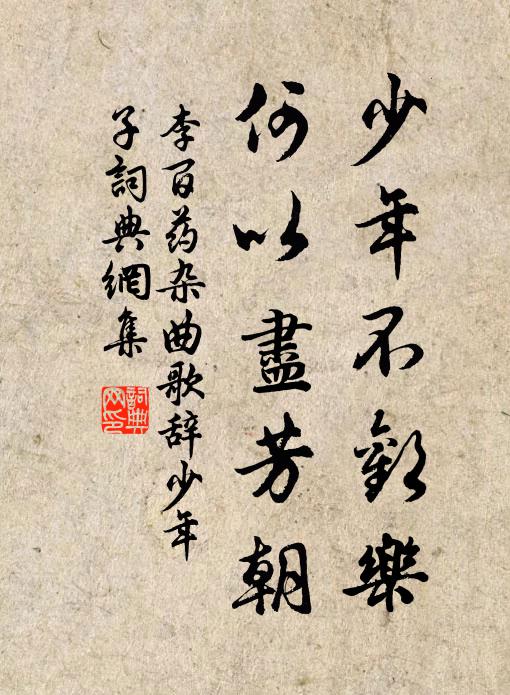 少年不歡樂
何以盡芳朝
李百药杂曲歌辞少年
子詞典網集
詞典
网印